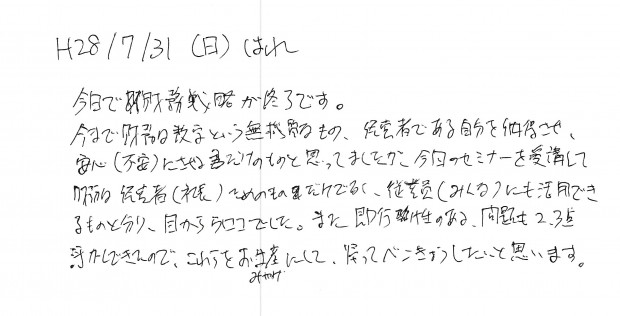 H28/7/31 (日) はれ
今日で財務戦略が終了です。
今まで財務は数字という無機質なもの、経営者である自分を納得させ、
安心(不安)にさせるだけのものと思ってましたが、今回のセミナーを受講して
財務は経営者(社長)のためのものだけでなく、従業員(みんな)にも活用でき
るものと分り、目からウロコでした。また即行性のある、問題も2.3点
できたので、これらをお土産にして、帰ってべんきょうしたいと思います。
みやげ